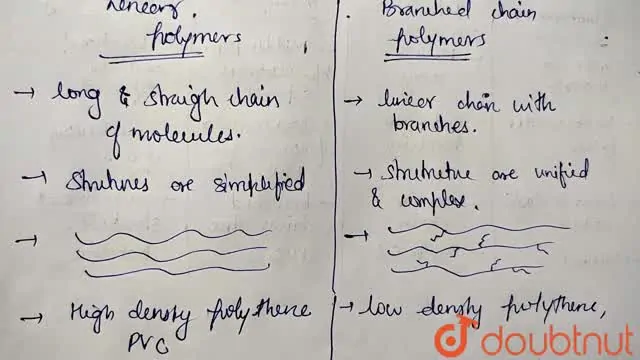 Linear
polymers
→ long & straigh chain
of molecules.
→ Strutures are simplified
→
→ High density polythene
PVC
Branched chain
polymers
→ linear chain with
branches.
→ Strutretue are unified
& complex.
→
→ low density polythene,
doubtnut